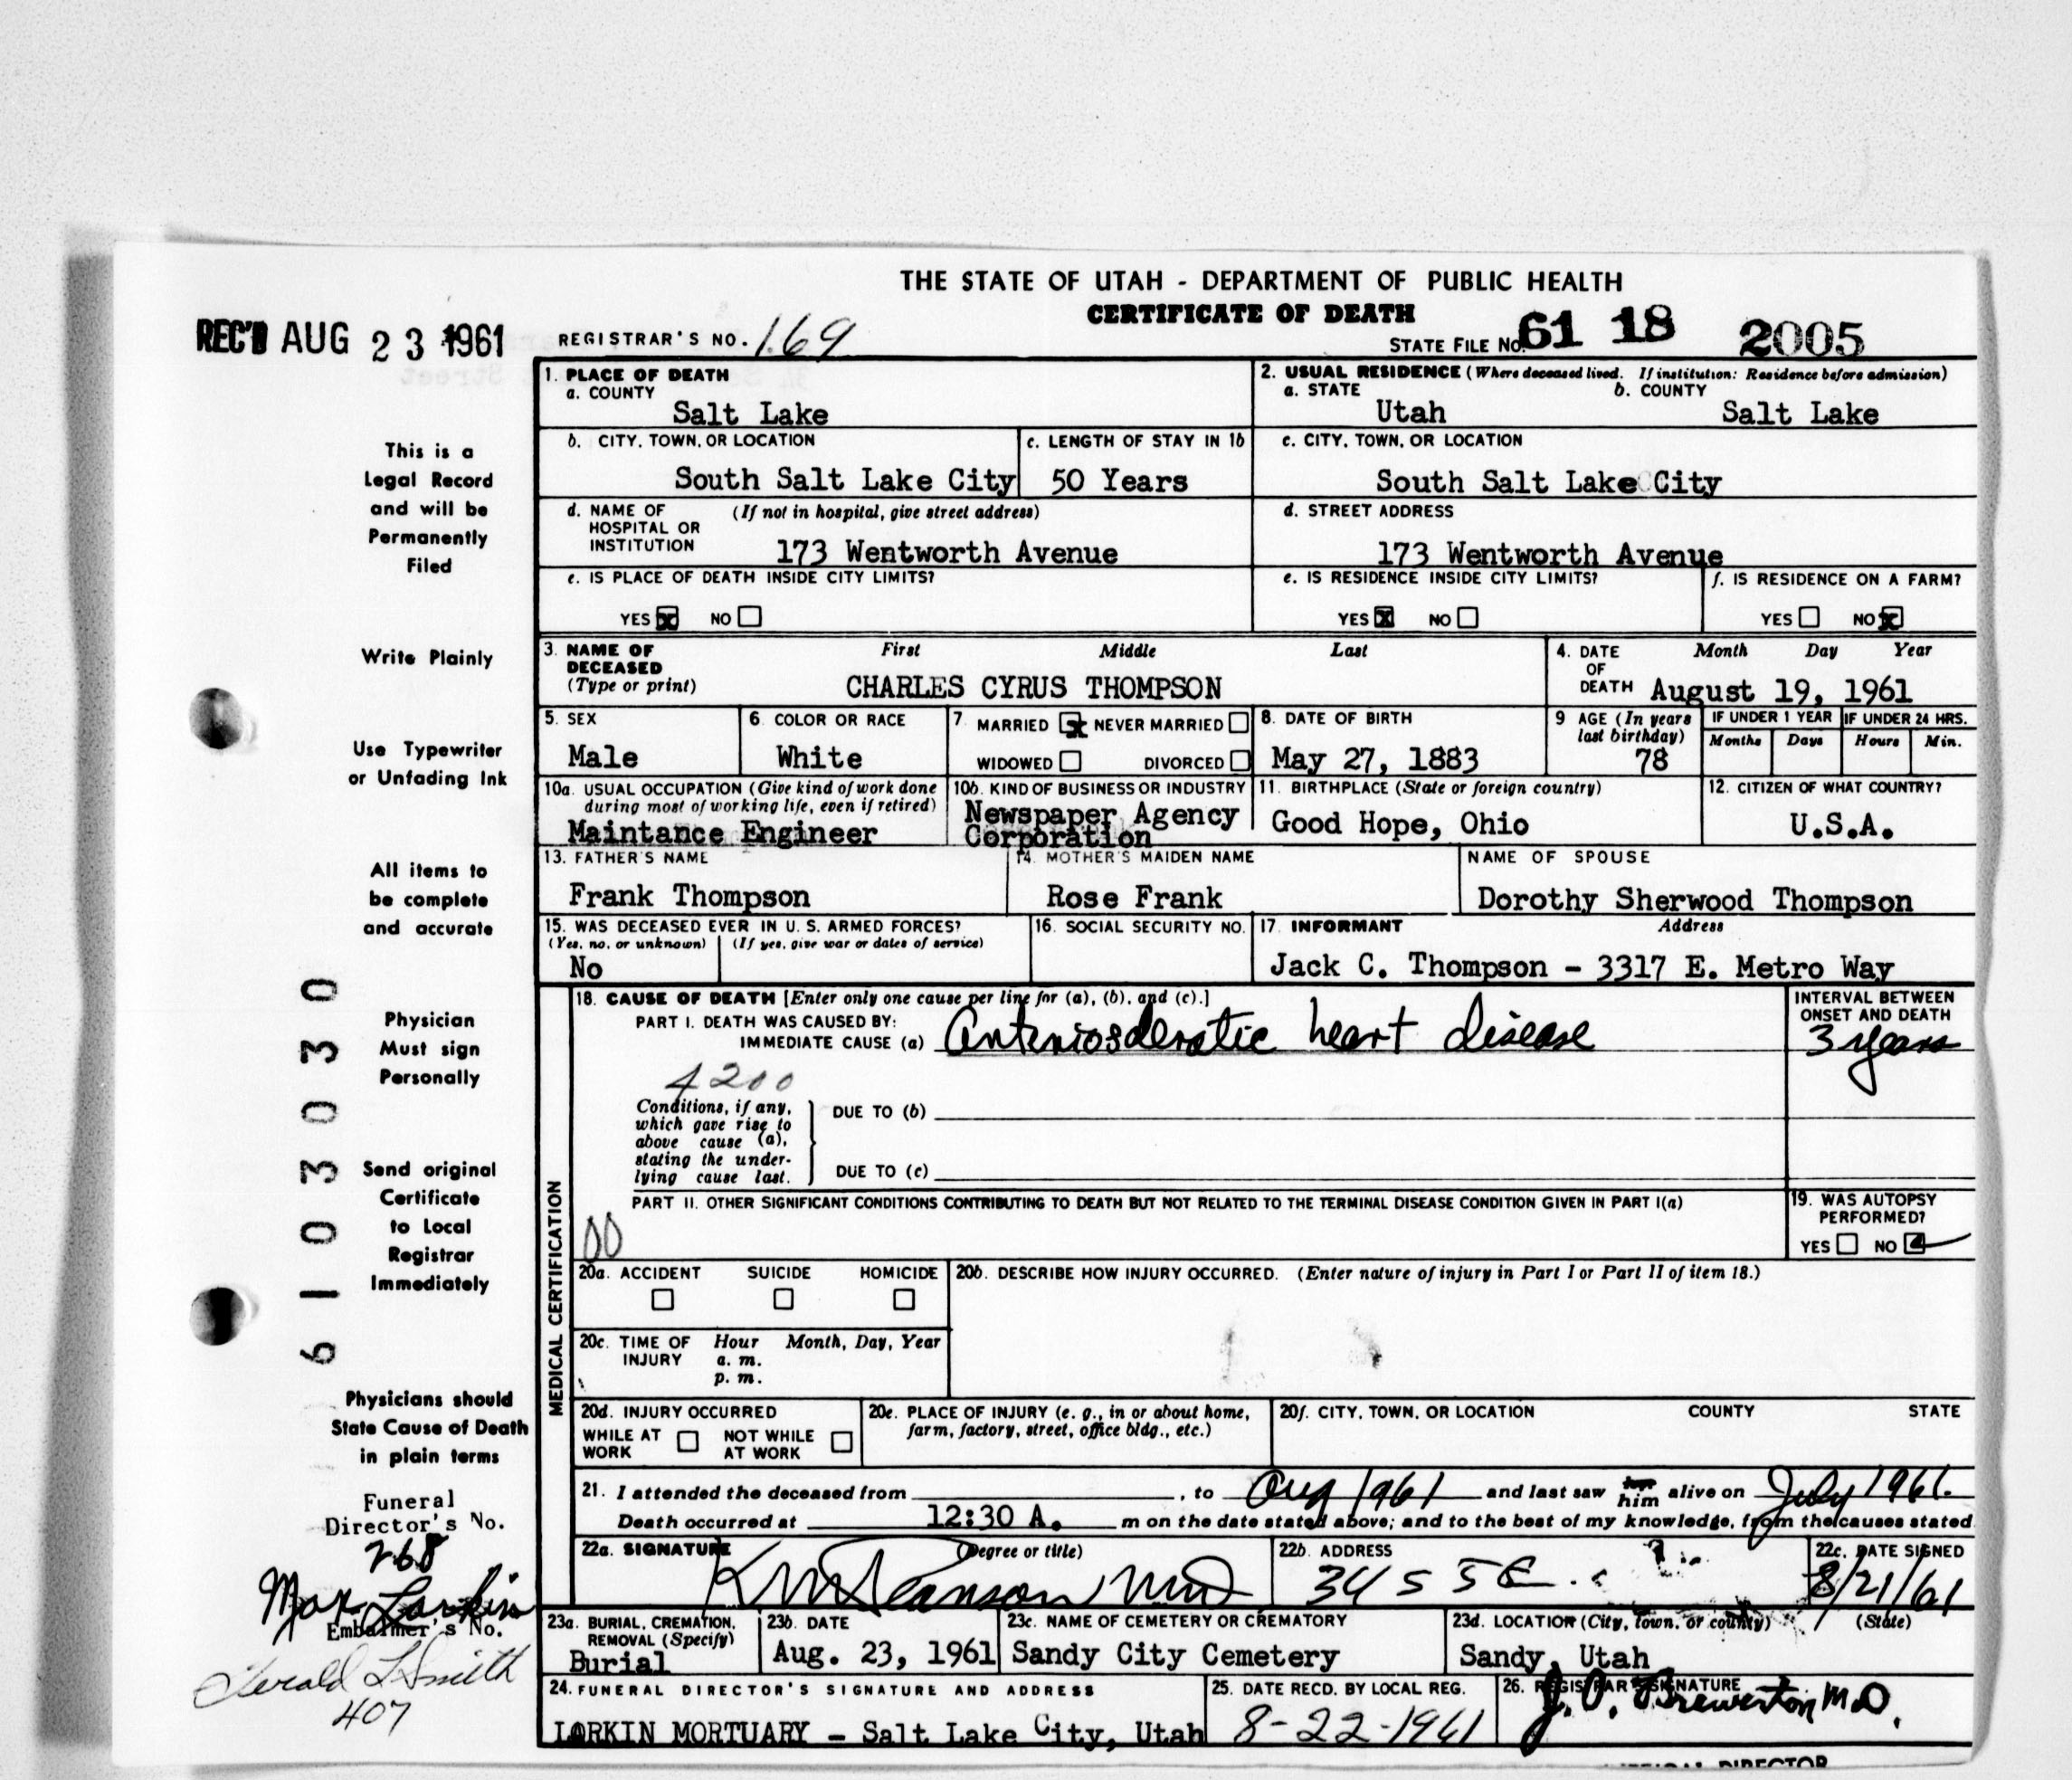 THE STATE OF UTAH - DEPARTMENT OF PUBLIC HEALTH
CERTIFICATE OF DEATH
REC'D AUG 23 1961
REGISTRAR'S NO. 169
STATE FILE NO. 61 18 2005
This is a
Legal Record
and will be
Permanently
Filed
Write Plainly
Use Typewriter
or Unfading Ink
All items to
be complete
and accurate
Physician
Must sign
Personally
Send original
Certificate
to Local
Registrar
Immediately
Physicians should
State Cause of Death
in plain terms
61030330
Funeral
Director's No.
268
Max Larkin
Embalmer's No.
Gerald L Smith
407
1. PLACE OF DEATH
a. COUNTY
Salt Lake
2. USUAL RESIDENCE (Where deceased lived. If institution: Residence before admission)
a. STATE b. COUNTY
Utah Salt Lake
b. CITY, TOWN, OR LOCATION
South Salt Lake City
c. LENGTH OF STAY IN 1b
50 Years
c. CITY, TOWN, OR LOCATION
South Salt Lake City
d. NAME OF HOSPITAL OR INSTITUTION (If not in hospital, give street address)
173 Wentworth Avenue
d. STREET ADDRESS
173 Wentworth Avenue
e. IS PLACE OF DEATH INSIDE CITY LIMITS?
YES x NO
e. IS RESIDENCE INSIDE CITY LIMITS?
YES x NO
f. IS RESIDENCE ON A FARM?
YES NO x
3. NAME OF DECEASED (Type or print) First Middle Last
CHARLES CYRUS THOMPSON
4. DATE OF DEATH Month Day Year
August 19, 1961
5. SEX
Male
6. COLOR OR RACE
White
7. MARRIED x NEVER MARRIED
WIDOWED DIVORCED
8. DATE OF BIRTH
May 27, 1883
9 AGE (In years last birthday)
78
IF UNDER 1 YEAR IF UNDER 24 HRS.
Months Days Hours Min.
10a. USUAL OCCUPATION (Give kind of work done during most of working life, even if retired)
Maintance Engineer
10b. KIND OF BUSINESS OR INDUSTRY
Newspaper Agency
Corporation
11. BIRTHPLACE (State or foreign country)
Good Hope, Ohio
12. CITIZEN OF WHAT COUNTRY?
U.S.A.
13. FATHER'S NAME
Frank Thompson
14. MOTHER'S MAIDEN NAME
Rose Frank
NAME OF SPOUSE
Dorothy Sherwood Thompson
15. WAS DECEASED EVER IN U. S. ARMED FORCES?
(Yes, no, or unknown) (If yes, give war or dates of service)
No
16. SOCIAL SECURITY NO.
17. INFORMANT Address
Jack C. Thompson - 3317 E. Metro Way
MEDICAL CERTIFICATION
18. CAUSE OF DEATH [Enter only one cause per line for (a), (b), and (c).]
PART I. DEATH WAS CAUSED BY:
IMMEDIATE CAUSE (a) Arteriosclerotic heart disease
INTERVAL BETWEEN
ONSET AND DEATH
3 years
4200
Conditions, if any,
which gave rise to
above cause (a),
stating the under-
lying cause last.
DUE TO (b)
DUE TO (c)
PART II. OTHER SIGNIFICANT CONDITIONS CONTRIBUTING TO DEATH BUT NOT RELATED TO THE TERMINAL DISEASE CONDITION GIVEN IN PART I(a)
00
19. WAS AUTOPSY
PERFORMED?
YES NO
20a. ACCIDENT SUICIDE HOMICIDE
20b. DESCRIBE HOW INJURY OCCURRED. (Enter nature of injury in Part I or Part II of item 18.)
20c. TIME OF INJURY Hour Month, Day, Year
a. m.
p. m.
20d. INJURY OCCURRED
WHILE AT WORK NOT WHILE AT WORK
20e. PLACE OF INJURY (e. g., in or about home, farm, factory, street, office bldg., etc.)
20f. CITY, TOWN, OR LOCATION COUNTY STATE
21. I attended the deceased from , to Aug 1961 and last saw her him alive on July 1961.
Death occurred at 12:30 A. m on the date stated above; and to the best of my knowledge, from the causes stated
22a. SIGNATURE (Degree or title)
MD
22b. ADDRESS
345 5 E.
22c. DATE SIGNED
8/21/61
23a. BURIAL, CREMATION, REMOVAL (Specify)
Burial
23b. DATE
Aug. 23, 1961
23c. NAME OF CEMETERY OR CREMATORY
Sandy City Cemetery
23d. LOCATION (City, town, or county) (State)
Sandy, Utah
24. FUNERAL DIRECTOR'S SIGNATURE AND ADDRESS
LARKIN MORTUARY - Salt Lake City, Utah
25. DATE RECD. BY LOCAL REG.
8-22-1961
26. REGISTRAR'S SIGNATURE
J. O. Brewerton M.D.
DIRECTOR